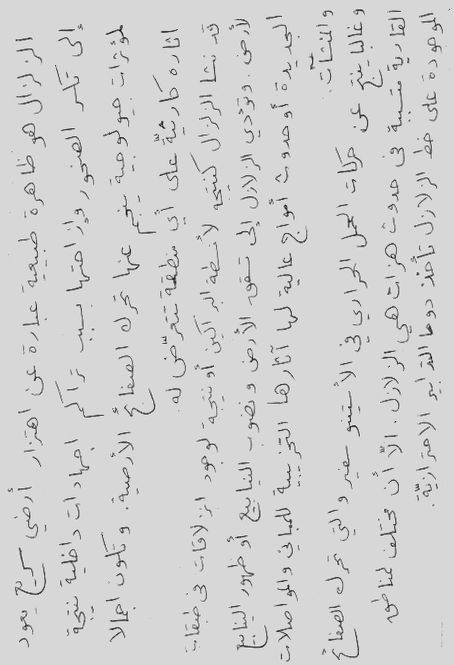 الزلزال هو ظاهرة طبيعية عبارة عن اهتزاز أرضي سريع يعود
إلى تكسر الصخور وإزاحتها بسبب تراكم اجهادات داخلية نتيجة
لمؤثرات جيولوجية ينجم عنها تحرك الصفائح الأرضية. وتكون اجمالا
اثاره كارثية على أي منطقة تتعرّض له.
قد ينشأ الزلزال كنتيجة لأنشطة البراكين أو نتيجة لوجود انزلاقات في طبقات
الأرض. وتؤدي الزلازل إلى تشقق الأرض ونضوب الينابيع أو ظهور الينابيع
الجديدة أو حدوث أمواج عالية لها آثارها التخريبية للمباني والمواصلات
والمنشآت.
وغالبا ينتج عن حركات الحمل الحراري في الأسينوسفير والتي تحرك الصفائح
القارية متسببة في حدوث هزات هي الزلازل. الاّ أن مختلف لمناطق
الموجودة على خط الزلازل تأخذ دوما التدابير الاحترازيّة.